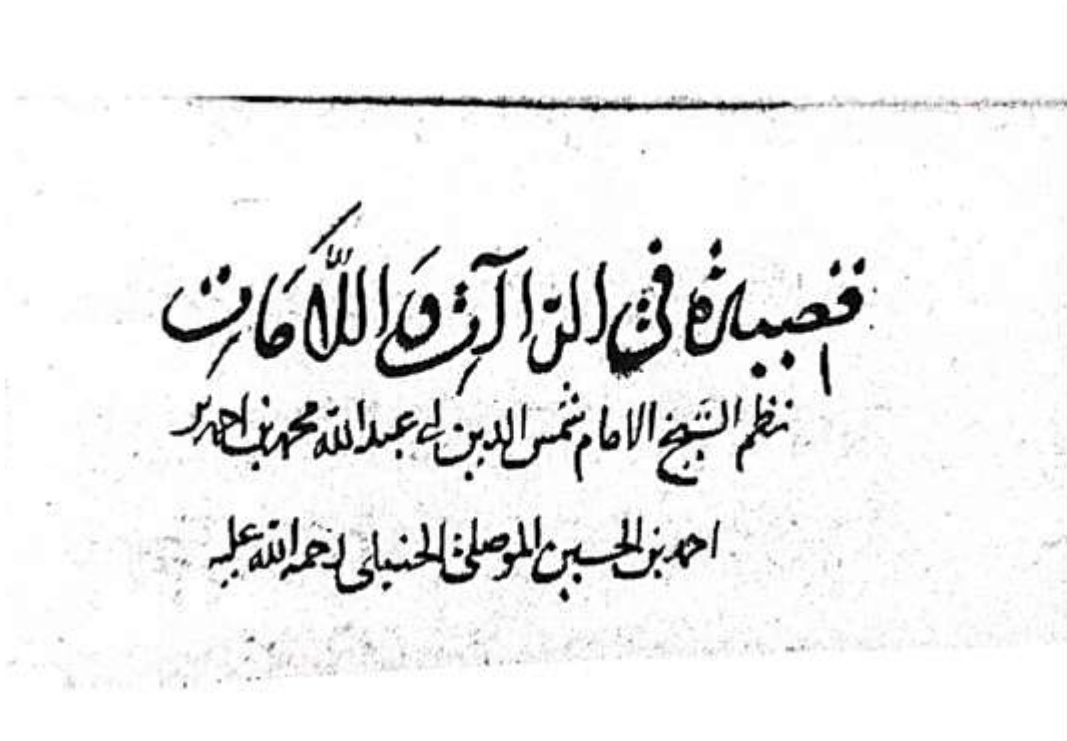 قصيدة في الراآت واللامات
نظم الشيخ الامام شمس الدين ابي عبد الله محمد بن احمد بن
احمد بن الحسين الموصلي الحنبلي رحمه الله عليه